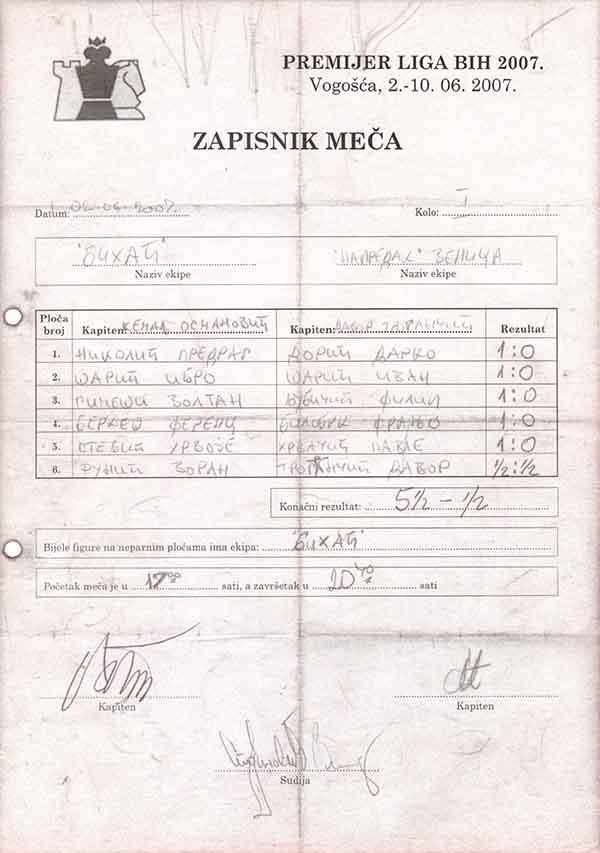 PREMIJER LIGA BIH 2007.
Vogošća, 2.-10. 06. 2007.
ZAPISNIK MEČA
Datum: 02.06.2007. Kolo: I
"БИХАЋ" "НАПРЕДАК" ЗЕНИЦА
Naziv ekipe Naziv ekipe
Ploča broj Kapiten: КЕМАЛ ОСМАНОВИЋ Kapiten: ДАВОР Rezultat
1. НИКОЛИЋ ПРЕДРАГ ДОРИЋ ДАРКО 1:0
2. ШАРИЋ ИБРО ШАРИЋ ИВАН 1:0
3. ГИМЕШИ ЗОЛТАН ФИЛИП 1:0
4. БЕРКЕШ ФЕРЕНЦ ФРАЊО 1:0
5. СТЕВИЋ ХРВОЈЕ ПАВЛЕ 1:0
6. ЗОРАН ДАВОР 1/2:1/2
Konačni rezultat: 5 1/2 – 1/2
Bijele figure na neparnim pločama ima ekipa: "БИХАЋ"
Početak meča je u 17 00 sati, a završetak u 20 40 sati
Kapiten Kapiten
Sudija